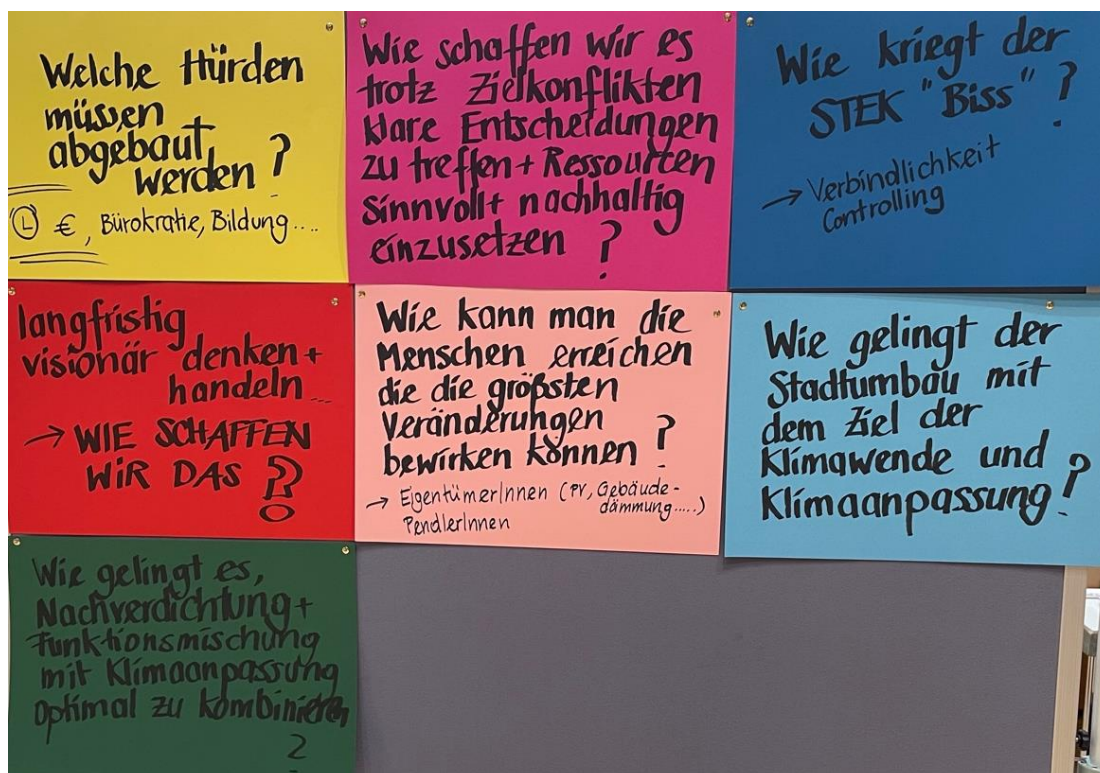 Welche Hürden
müssen
abgebaut
werden?
€, Bürokratie, Bildung....
Wie schaffen wir es
trotz Zielkonflikten
klare Entscheidungen
zu treffen + Ressourcen
sinnvoll + nachhaltig
einzusetzen?
Wie kriegt der
STEK "Biss"?
→ Verbindlichkeit
Controlling
langfristig
visionär denken +
handeln...
→ WIE SCHAFFEN
WIR DAS?!
Wie kann man die
Menschen erreichen
die die größten
Veränderungen
bewirken können?
→ EigentümerInnen (PV, Gebäude-
dämmung.....)
PendlerInnen
Wie gelingt der
Stadtumbau mit
dem Ziel der
Klimawende und
Klimaanpassung?
Wie gelingt es,
Nachverdichtung +
Funktionsmischung
mit Klimaanpassung
optimal zu kombinieren
?